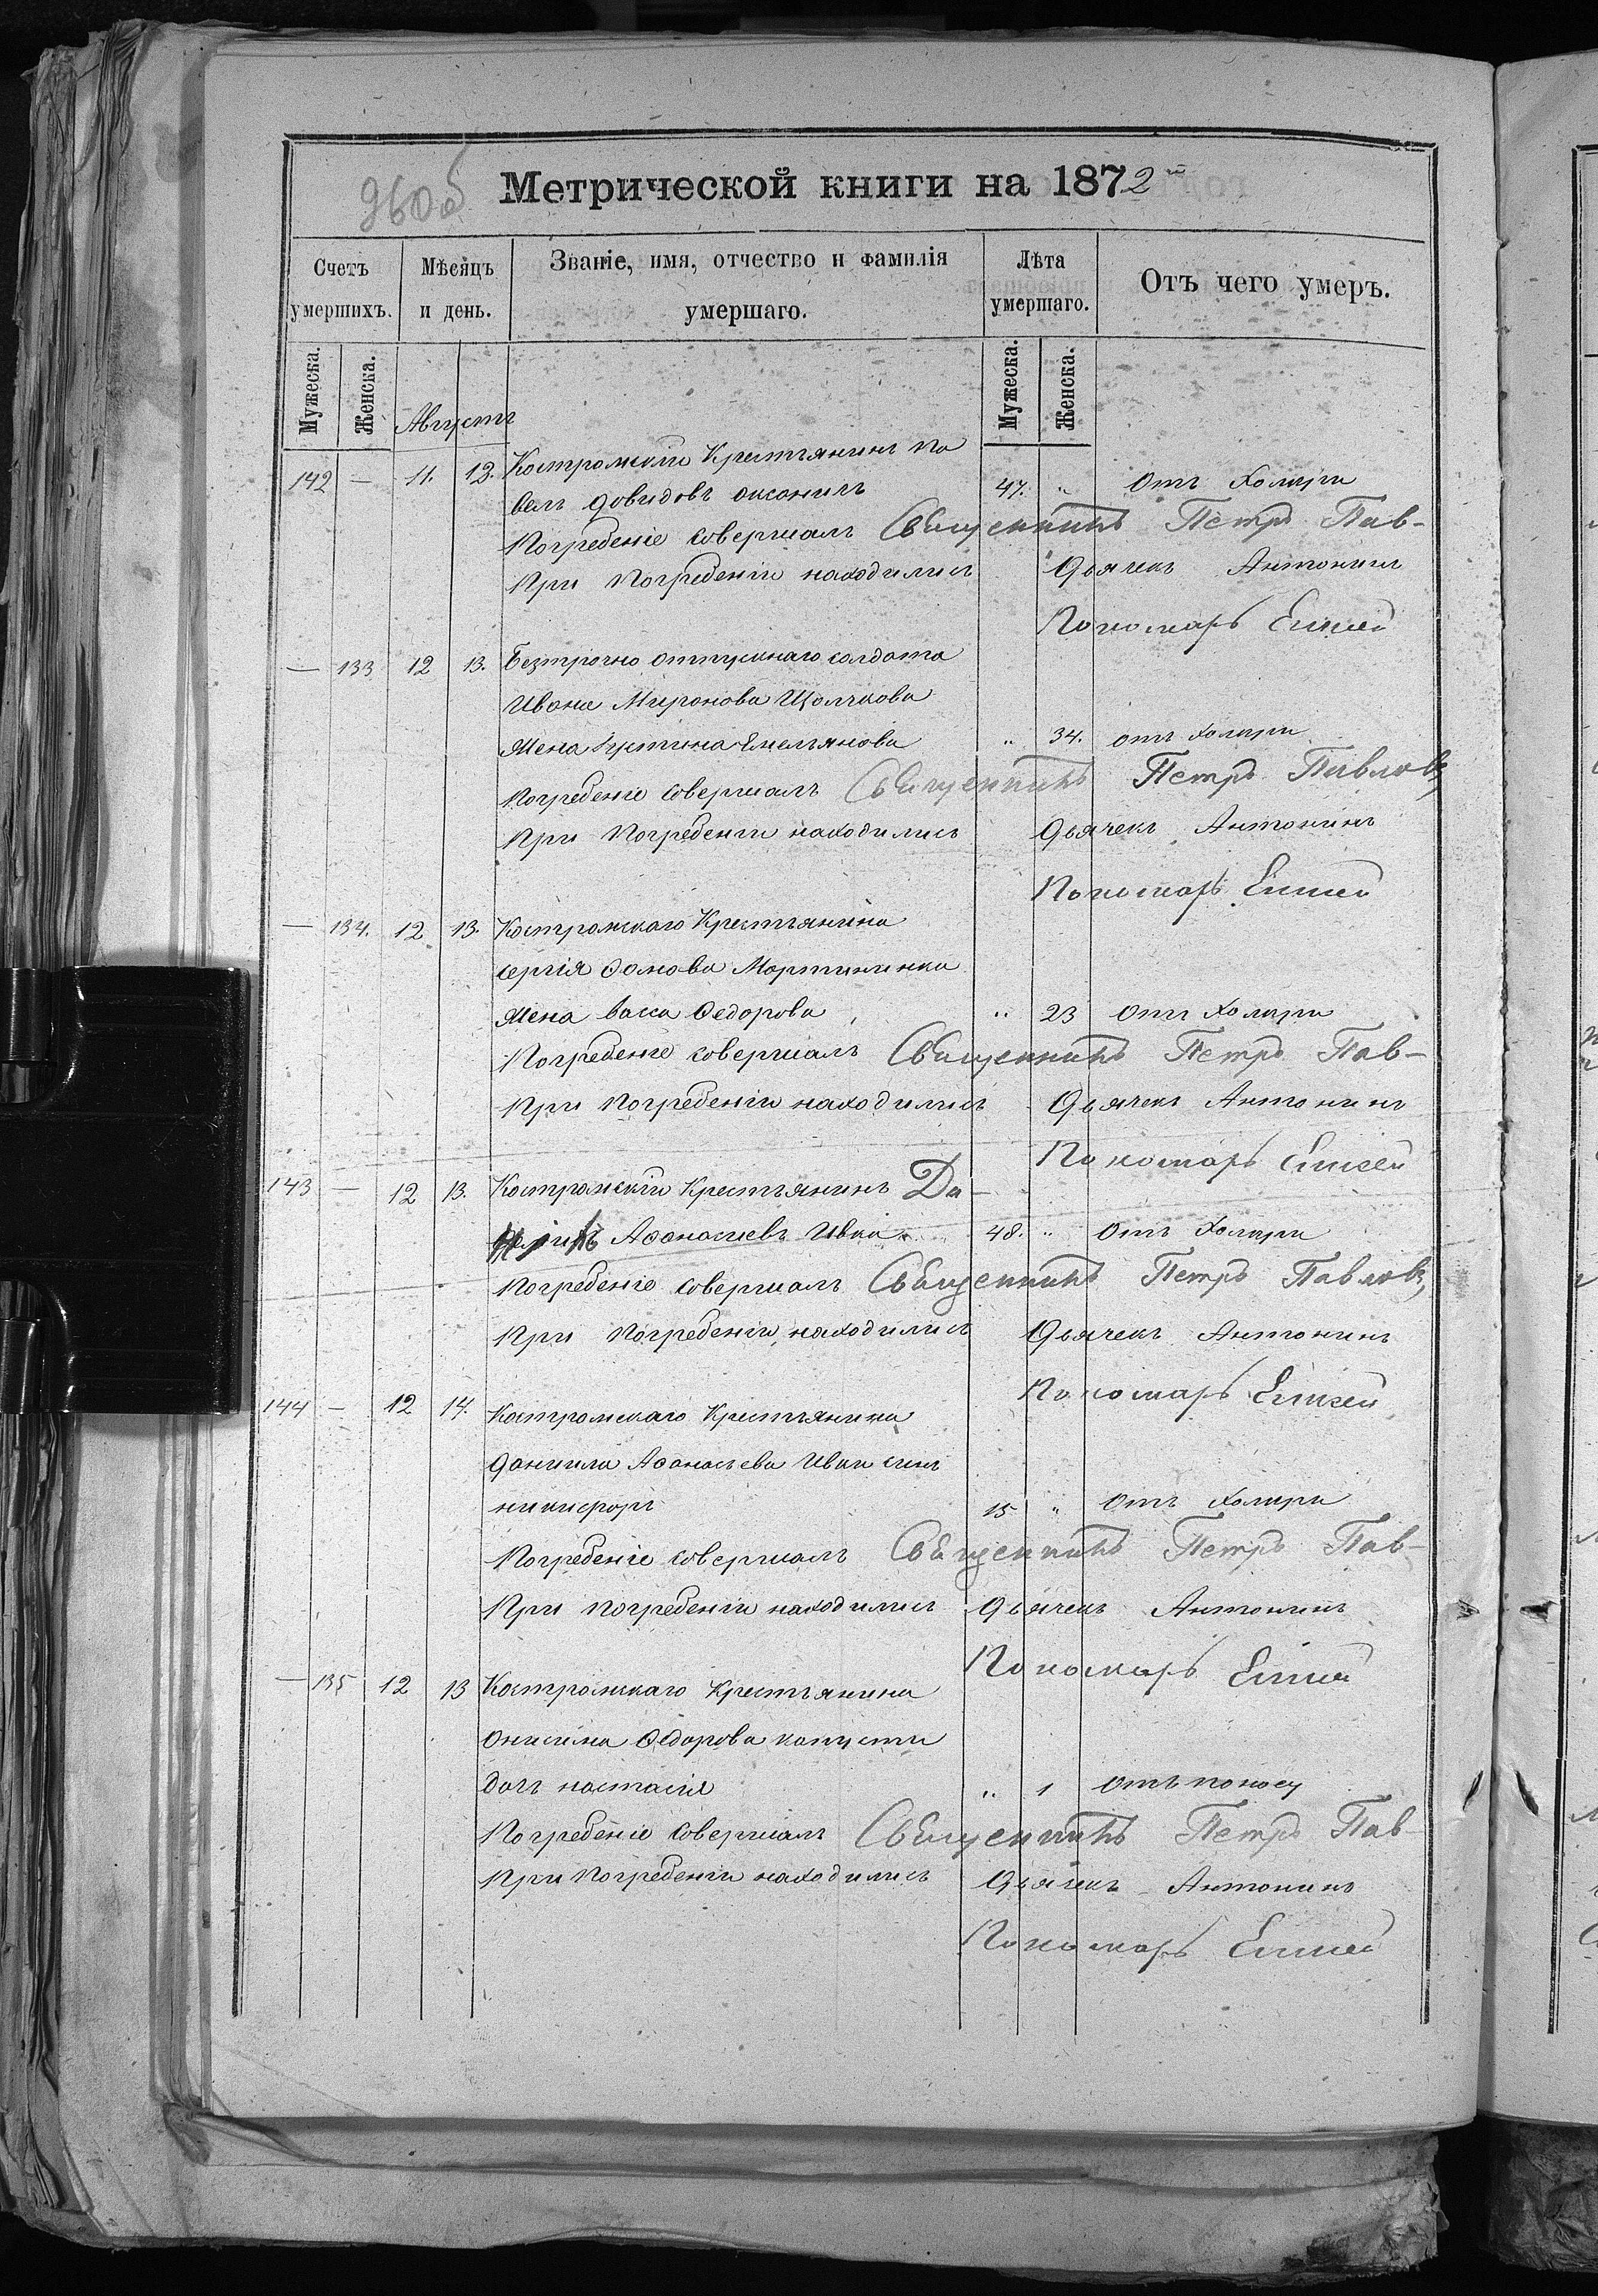 960об
Метрической книги на 1872й
Счетъ умершихъ.
Мѣсяцъ и день.
Званіе, имя, отчество и фамилія умершаго.
Лѣта умершаго.
Отъ чего умеръ.
Мужеска. Женска. Августъ Мужеска. Женска.
142 — 11. 13. Костромскій Крестьянинъ Па
велъ Довидовъ 47. „ Отъ Холеры
Погребеніе совершалъ Священникъ Петръ Пав-
При Погребеніи находились Дьячекъ Антонинъ
Пономарь Елисей
— 133 12 13. Безсрочно отпускнаго солдата
Ивана Миронова Щолчкова
жена Густина Емельянова „ 34. отъ Холеры
Погребеніе совершалъ Священникъ Петръ Павловъ
При Погребеніи находились Дьячекъ Антонинъ
Пономарь Елисей
— 134. 12 13. Костромскаго Крестьянина
сергія Фомова Мартиненка
жена васса Федорова „ 23 Отъ Холеры
Погребеніе совершалъ Священникъ Петръ Пав-
При Погребеніи находились Дьячекъ Антонинъ
Пономарь Елисей
143 — 12 13. Костромскій Крестьянинъ Да-
Афанасіевъ Ивка 48. „ Отъ Холеры
Погребеніе совершалъ Священникъ Петръ Павловъ
При Погребеніи находились Дьячекъ Антонинъ
Пономарь Елисей
144 — 12 14. Костромскаго Крестьянина
Даниила Афанасьева Ивки сынъ
никифоръ 15 „ Отъ Холеры
Погребеніе совершалъ Священникъ Петръ Пав-
При Погребеніи находились Дьячекъ Антонинъ
Пономарь Елисей
— 135 12 13 Костромскаго Крестьянина
Онисима Федорова капусти
дочь настасія „ 1 Отъ поносу
Погребеніе Совершалъ Священникъ Петръ Пав-
При Погребеніи находились Дьячекъ Антонинъ
Пономарь Елисей